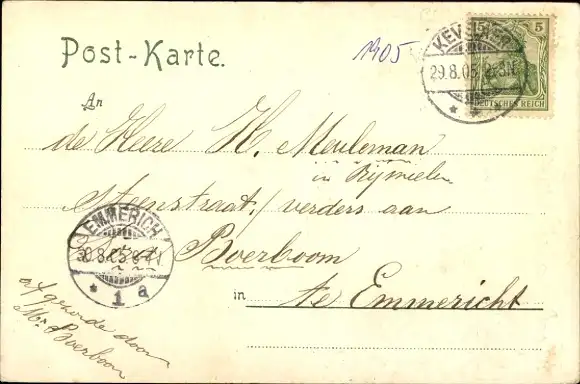 Post-Karte.
1905
KEVELAER
29.8.05
5 5
DEUTSCHES REICH
An
de Heere H. Meuleman
in
Steenstraat / verders aan
EMMERICH
8.05
* 1 a
Boerboom
in te Emmericht
door
Mr. Boerboom